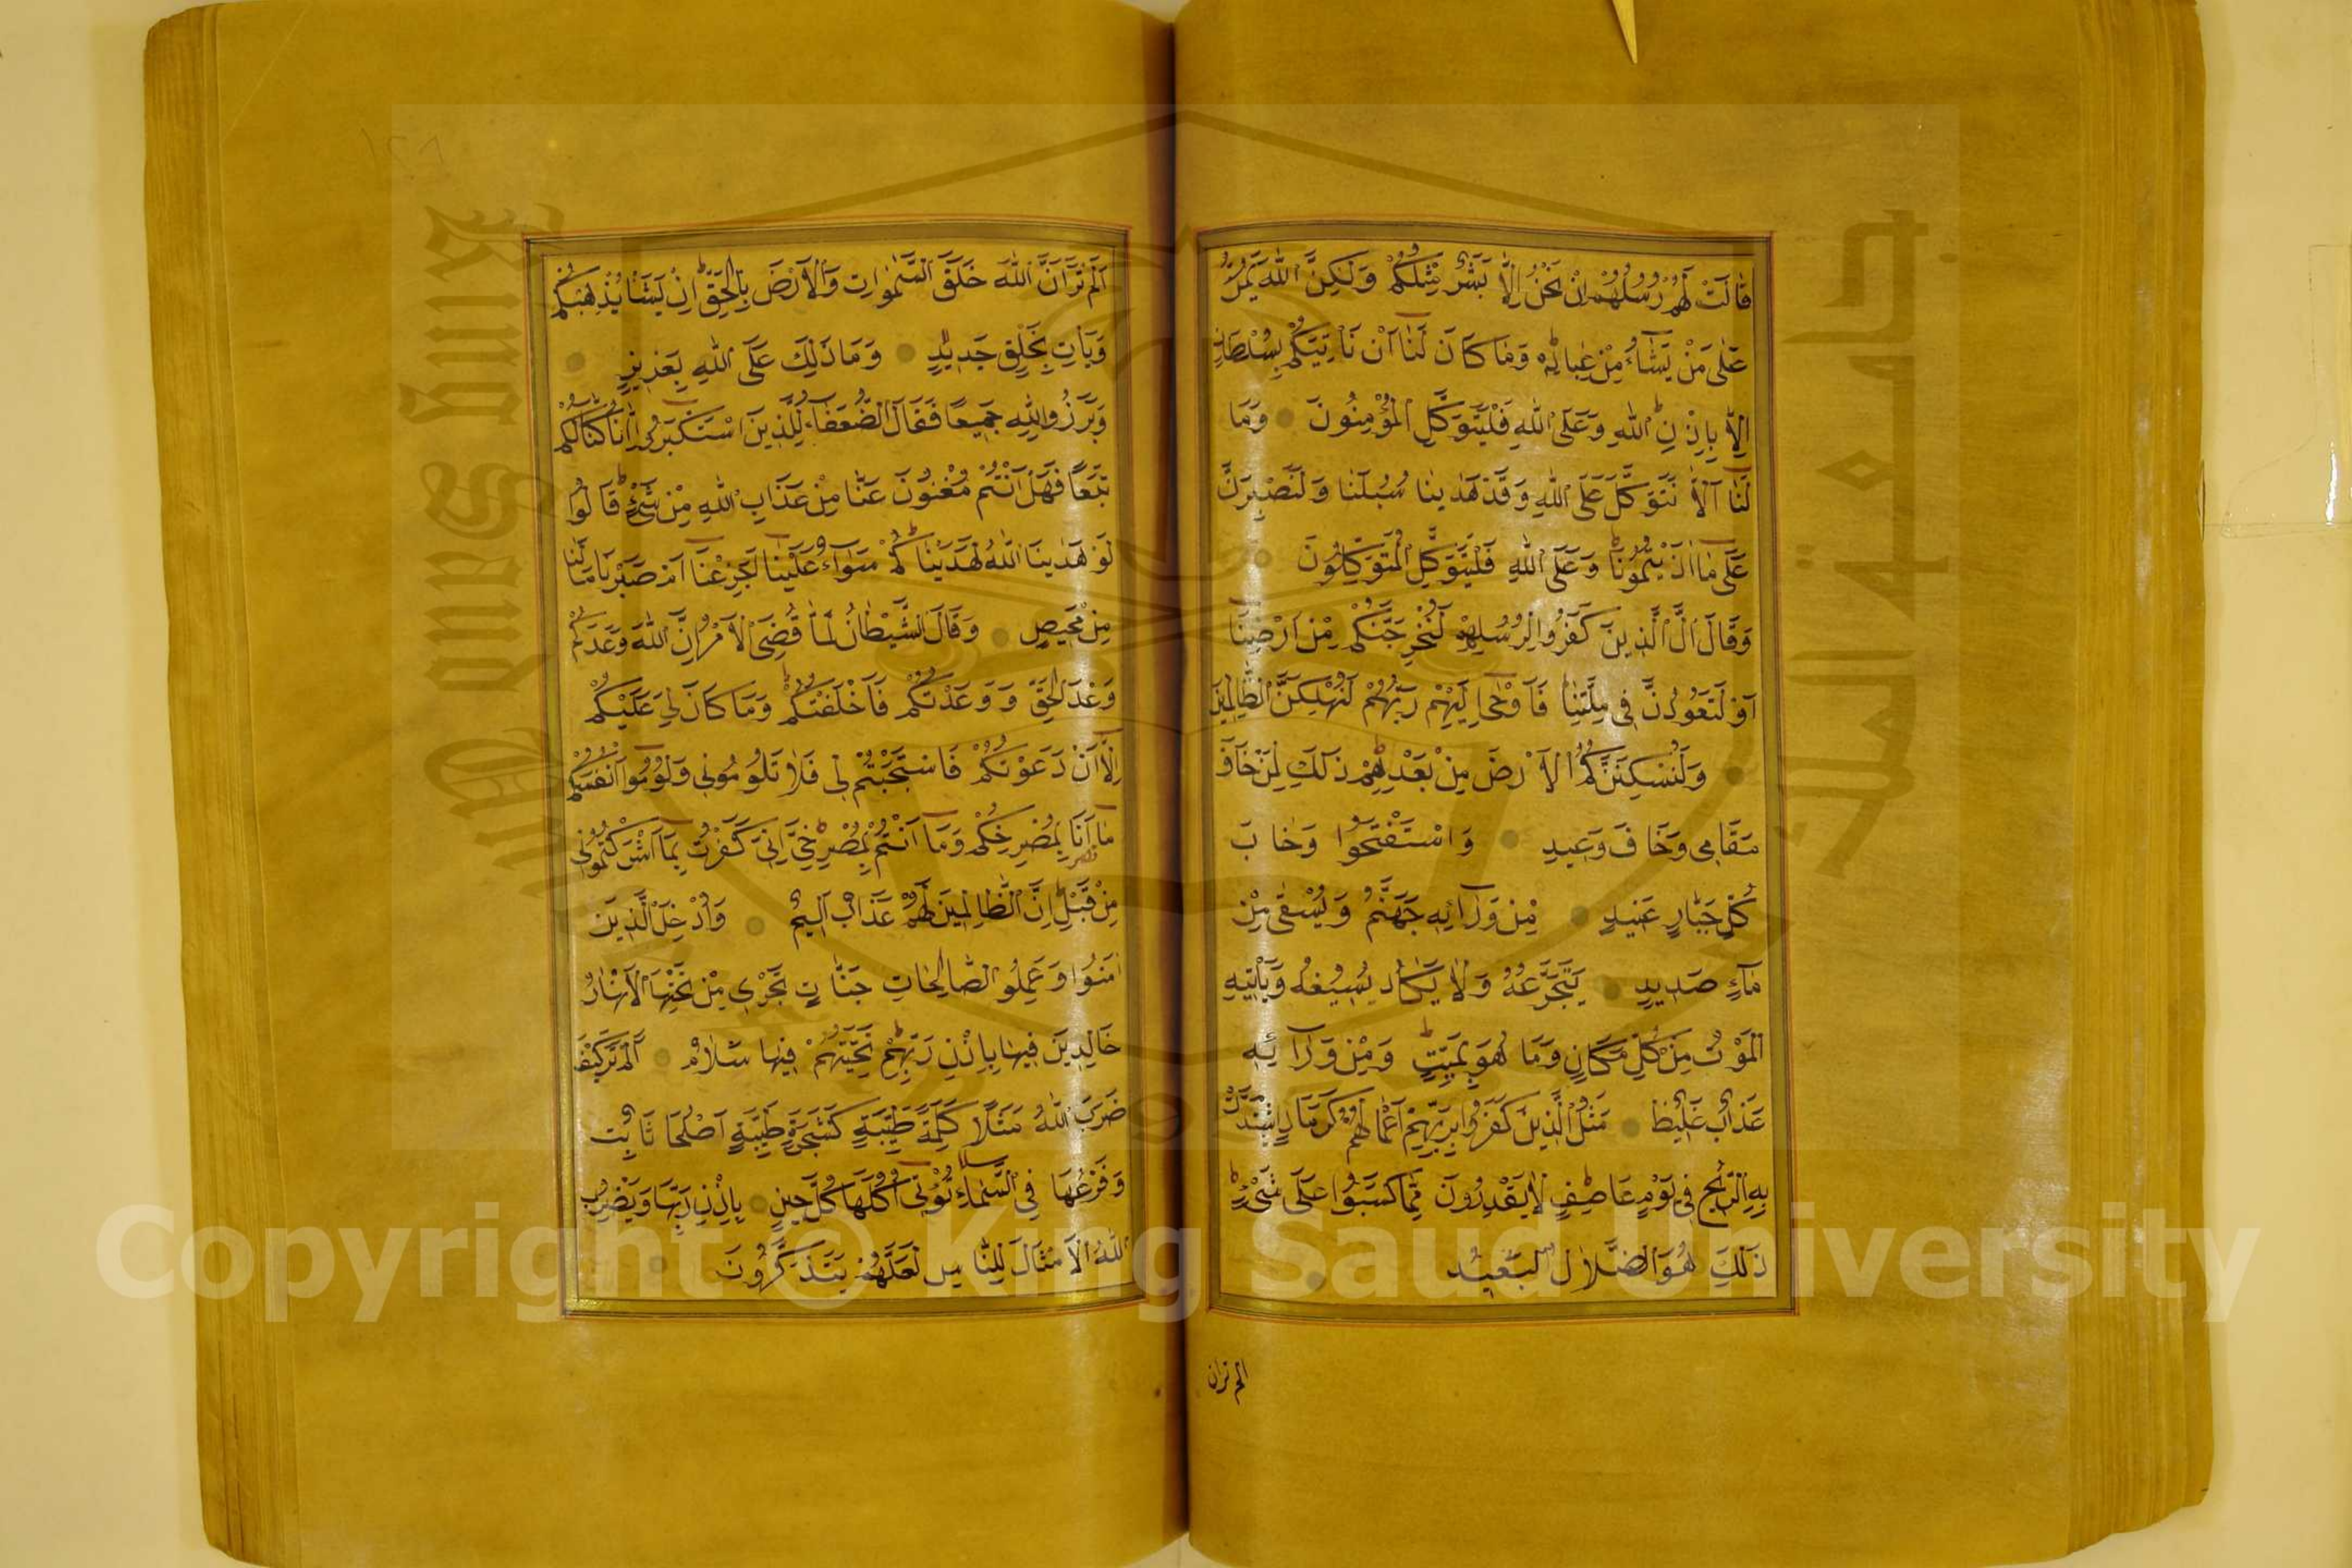 قَالَتْ لَهُمْ رُسُلُهُمْ اِنْ نَحْنُ اِلَّا بَشَرٌ مِثْلُكُمْ وَلٰكِنَّ اللّٰهَ يَمُنُّ
عَلٰى مَنْ يَشَاءُ مِنْ عِبَادِهِ وَمَا كَانَ لَنَا اَنْ نَاْتِيَكُمْ بِسُلْطَانٍ
اِلَّا بِاِذْنِ اللّٰهِ وَعَلَى اللّٰهِ فَلْيَتَوَكَّلِ الْمُؤْمِنُونَ وَمَا
لَنَا اَلَّا نَتَوَكَّلَ عَلَى اللّٰهِ وَقَدْ هَدٰينَا سُبُلَنَا وَلَنَصْبِرَنَّ
عَلٰى مَا اٰذَيْتُمُونَا وَعَلَى اللّٰهِ فَلْيَتَوَكَّلِ الْمُتَوَكِّلُونَ
وَقَالَ الَّذِينَ كَفَرُوا لِرُسُلِهِمْ لَنُخْرِجَنَّكُمْ مِنْ اَرْضِنَا
اَوْ لَتَعُودُنَّ فِى مِلَّتِنَا فَاَوْحٰى اِلَيْهِمْ رَبُّهُمْ لَنُهْلِكَنَّ الظَّالِمِينَ
وَلَنُسْكِنَنَّكُمُ الْاَرْضَ مِنْ بَعْدِهِمْ ذٰلِكَ لِمَنْ خَافَ
مَقَامِى وَخَافَ وَعِيدِ وَاسْتَفْتَحُوا وَخَابَ
كُلُّ جَبَّارٍ عَنِيدٍ مِنْ وَرَائِهِ جَهَنَّمُ وَيُسْقٰى مِنْ
مَاءٍ صَدِيدٍ يَتَجَرَّعُهُ وَلَا يَكَادُ يُسِيغُهُ وَيَاْتِيهِ
الْمَوْتُ مِنْ كُلِّ مَكَانٍ وَمَا هُوَ بِمَيِّتٍ وَمِنْ وَرَائِهِ
عَذَابٌ غَلِيظٌ مَثَلُ الَّذِينَ كَفَرُوا بِرَبِّهِمْ اَعْمَالُهُمْ كَرَمَادٍ اشْتَدَّتْ
بِهِ الرِّيحُ فِى يَوْمٍ عَاصِفٍ لَا يَقْدِرُونَ مِمَّا كَسَبُوا عَلٰى شَىْءٍ
ذٰلِكَ هُوَ الضَّلَالُ الْبَعِيدُ
الم تر ان
اَلَمْ تَرَ اَنَّ اللّٰهَ خَلَقَ السَّمٰوَاتِ وَالْاَرْضَ بِالْحَقِّ اِنْ يَشَاْ يُذْهِبْكُمْ
وَيَاْتِ بِخَلْقٍ جَدِيدٍ وَمَا ذٰلِكَ عَلَى اللّٰهِ بِعَزِيزٍ
وَبَرَزُوا لِلّٰهِ جَمِيعًا فَقَالَ الضُّعَفَاءُ لِلَّذِينَ اسْتَكْبَرُوا اِنَّا كُنَّا لَكُمْ
تَبَعًا فَهَلْ اَنْتُمْ مُغْنُونَ عَنَّا مِنْ عَذَابِ اللّٰهِ مِنْ شَىْءٍ قَالُوا
لَوْ هَدٰينَا اللّٰهُ لَهَدَيْنَاكُمْ سَوَاءٌ عَلَيْنَا اَجَزِعْنَا اَمْ صَبَرْنَا مَا لَنَا
مِنْ مَحِيصٍ وَقَالَ الشَّيْطَانُ لَمَّا قُضِىَ الْاَمْرُ اِنَّ اللّٰهَ وَعَدَكُمْ
وَعْدَ الْحَقِّ وَوَعَدْتُكُمْ فَاَخْلَفْتُكُمْ وَمَا كَانَ لِىَ عَلَيْكُمْ
اِلَّا اَنْ دَعَوْتُكُمْ فَاسْتَجَبْتُمْ لِى فَلَا تَلُومُونِى وَلُومُوا اَنْفُسَكُمْ
مَا اَنَا بِمُصْرِخِكُمْ وَمَا اَنْتُمْ بِمُصْرِخِىَّ اِنِّى كَفَرْتُ بِمَا اَشْرَكْتُمُونِ
مِنْ قَبْلُ اِنَّ الظَّالِمِينَ لَهُمْ عَذَابٌ اَلِيمٌ وَاُدْخِلَ الَّذِينَ
اٰمَنُوا وَعَمِلُوا الصَّالِحَاتِ جَنَّاتٍ تَجْرِى مِنْ تَحْتِهَا الْاَنْهَارُ
خَالِدِينَ فِيهَا بِاِذْنِ رَبِّهِمْ تَحِيَّتُهُمْ فِيهَا سَلَامٌ اَلَمْ تَرَ كَيْفَ
ضَرَبَ اللّٰهُ مَثَلًا كَلِمَةً طَيِّبَةً كَشَجَرَةٍ طَيِّبَةٍ اَصْلُهَا ثَابِتٌ
وَفَرْعُهَا فِى السَّمَاءِ تُؤْتِى اُكُلَهَا كُلَّ حِينٍ بِاِذْنِ رَبِّهَا وَيَضْرِبُ
اللّٰهُ الْاَمْثَالَ لِلنَّاسِ لَعَلَّهُمْ يَتَذَكَّرُونَ
King Saud University
جامعة الملك
1957
Copyright © King Saud University